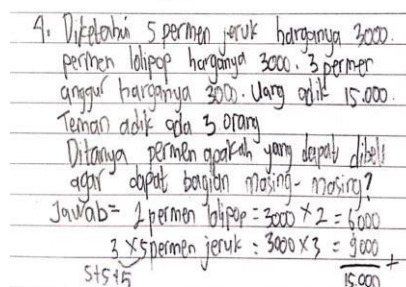 4. Diketahui 5 permen jeruk harganya 3000.
permen lolipop harganya 3000. 3 permen
anggur harganya 3000. Uang adik 15.000.
Teman adik ada 3 orang
Ditanya permen apakah yang dapat dibeli
agar dapat bagian masing-masing?
Jawab= 2 permen lolipop = 3000 × 2 = 6000
3 × 5 permen jeruk : 3000 × 3 = 9000 +
5+5+5 15.000